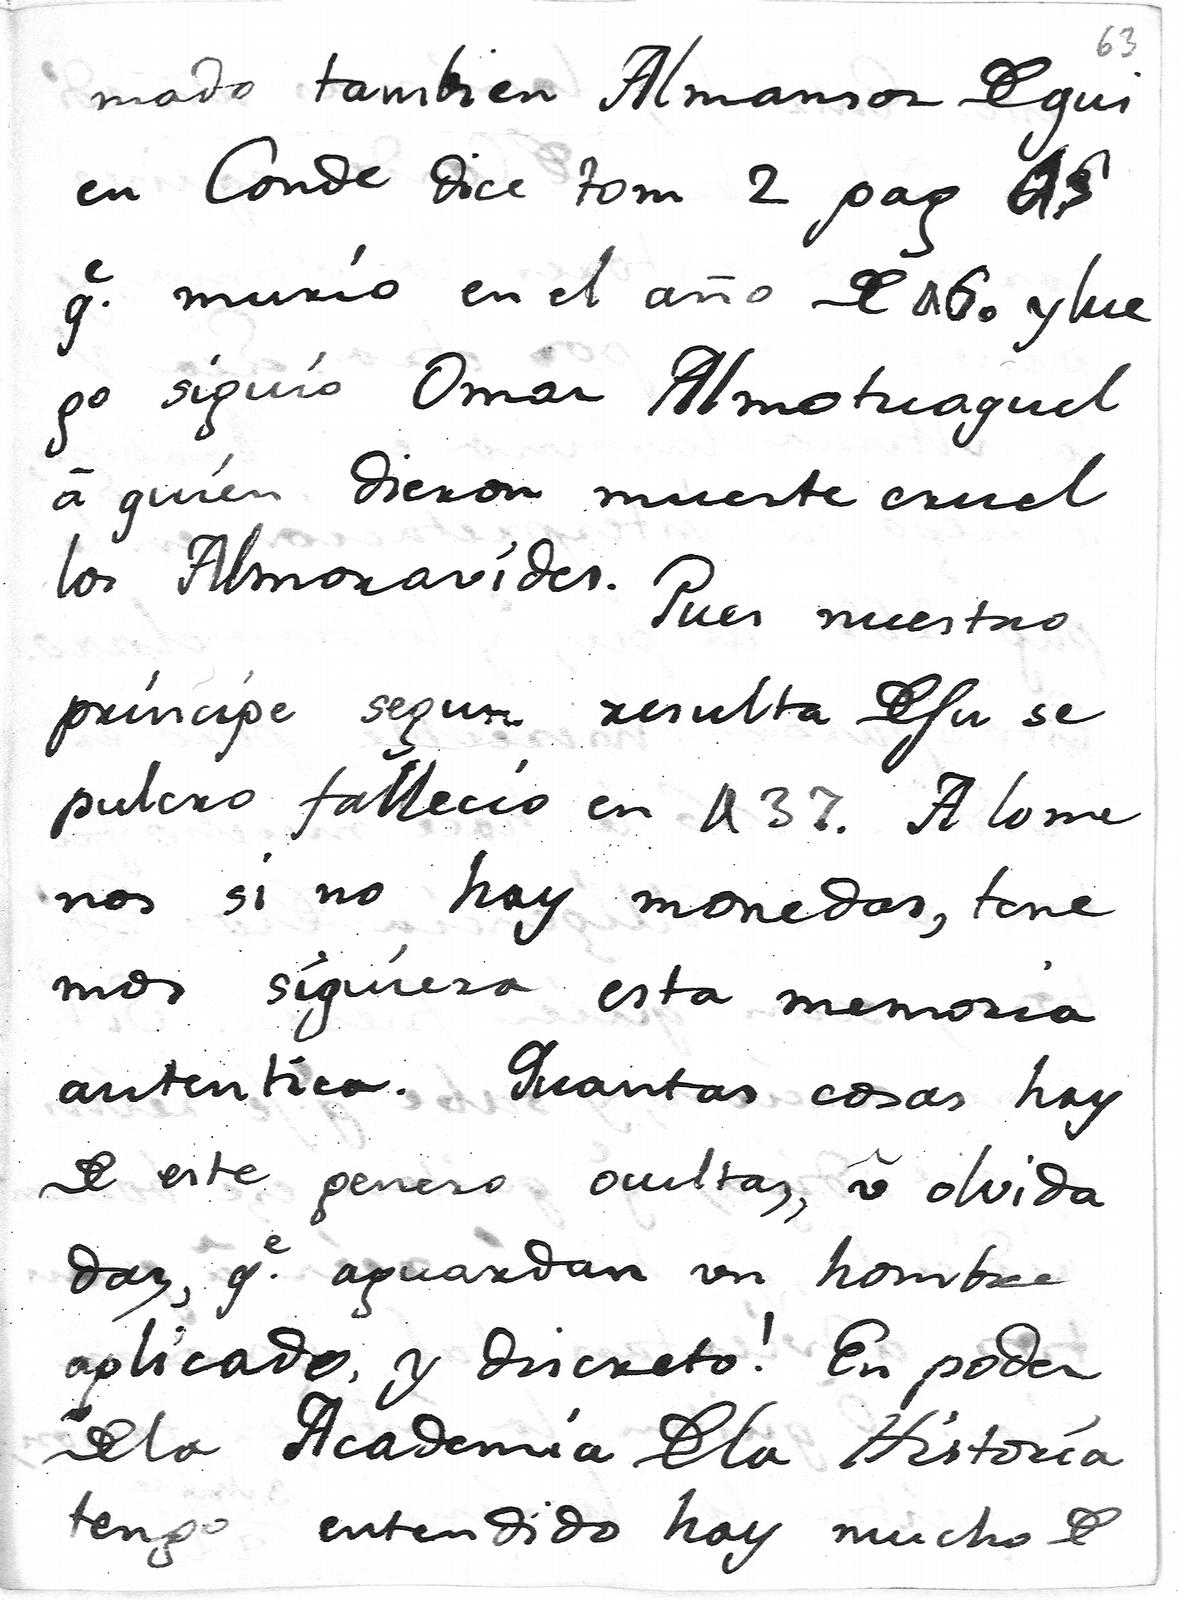 63
mado tambien Almansor De qui
en Conde dice tom 2 pag 15
q.e murio en el año De 460 y lue
go siguio Omar Almotuaquel
ā quien dieron muerte cruel
los Almoravides. Pues nuestro
principe segun resulta De su se
pulcro falleció en 437. A lo me
nos si no hay monedas, tene
mos siquiera esta memoria
autentica. Quantas cosas hay
De este genero ocultas, ũ olvida
das, q.e aguardan un hombre
aplicado, y discreto! En poder
De la Academia De la Historia
tengo entendido hay mucho De